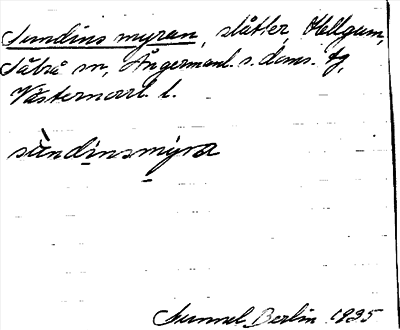 Sundins myran, slåtter, Hellgum,
Såbrå sn, Ångermanl. s. doms. fg,
Västernorrl. l.
sùndinsmỳra
Gunnel Berlin 1935